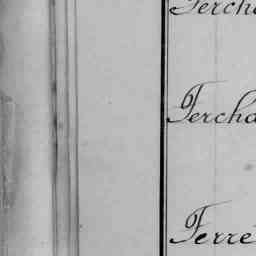 Fercha
Fercha
Ferre